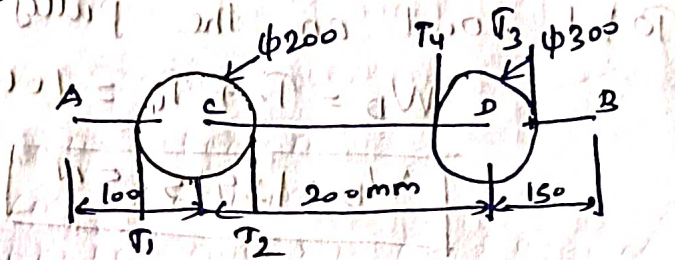 ϕ200 T4 T3 ϕ300
A C D B
100 200mm 150
T1 T2